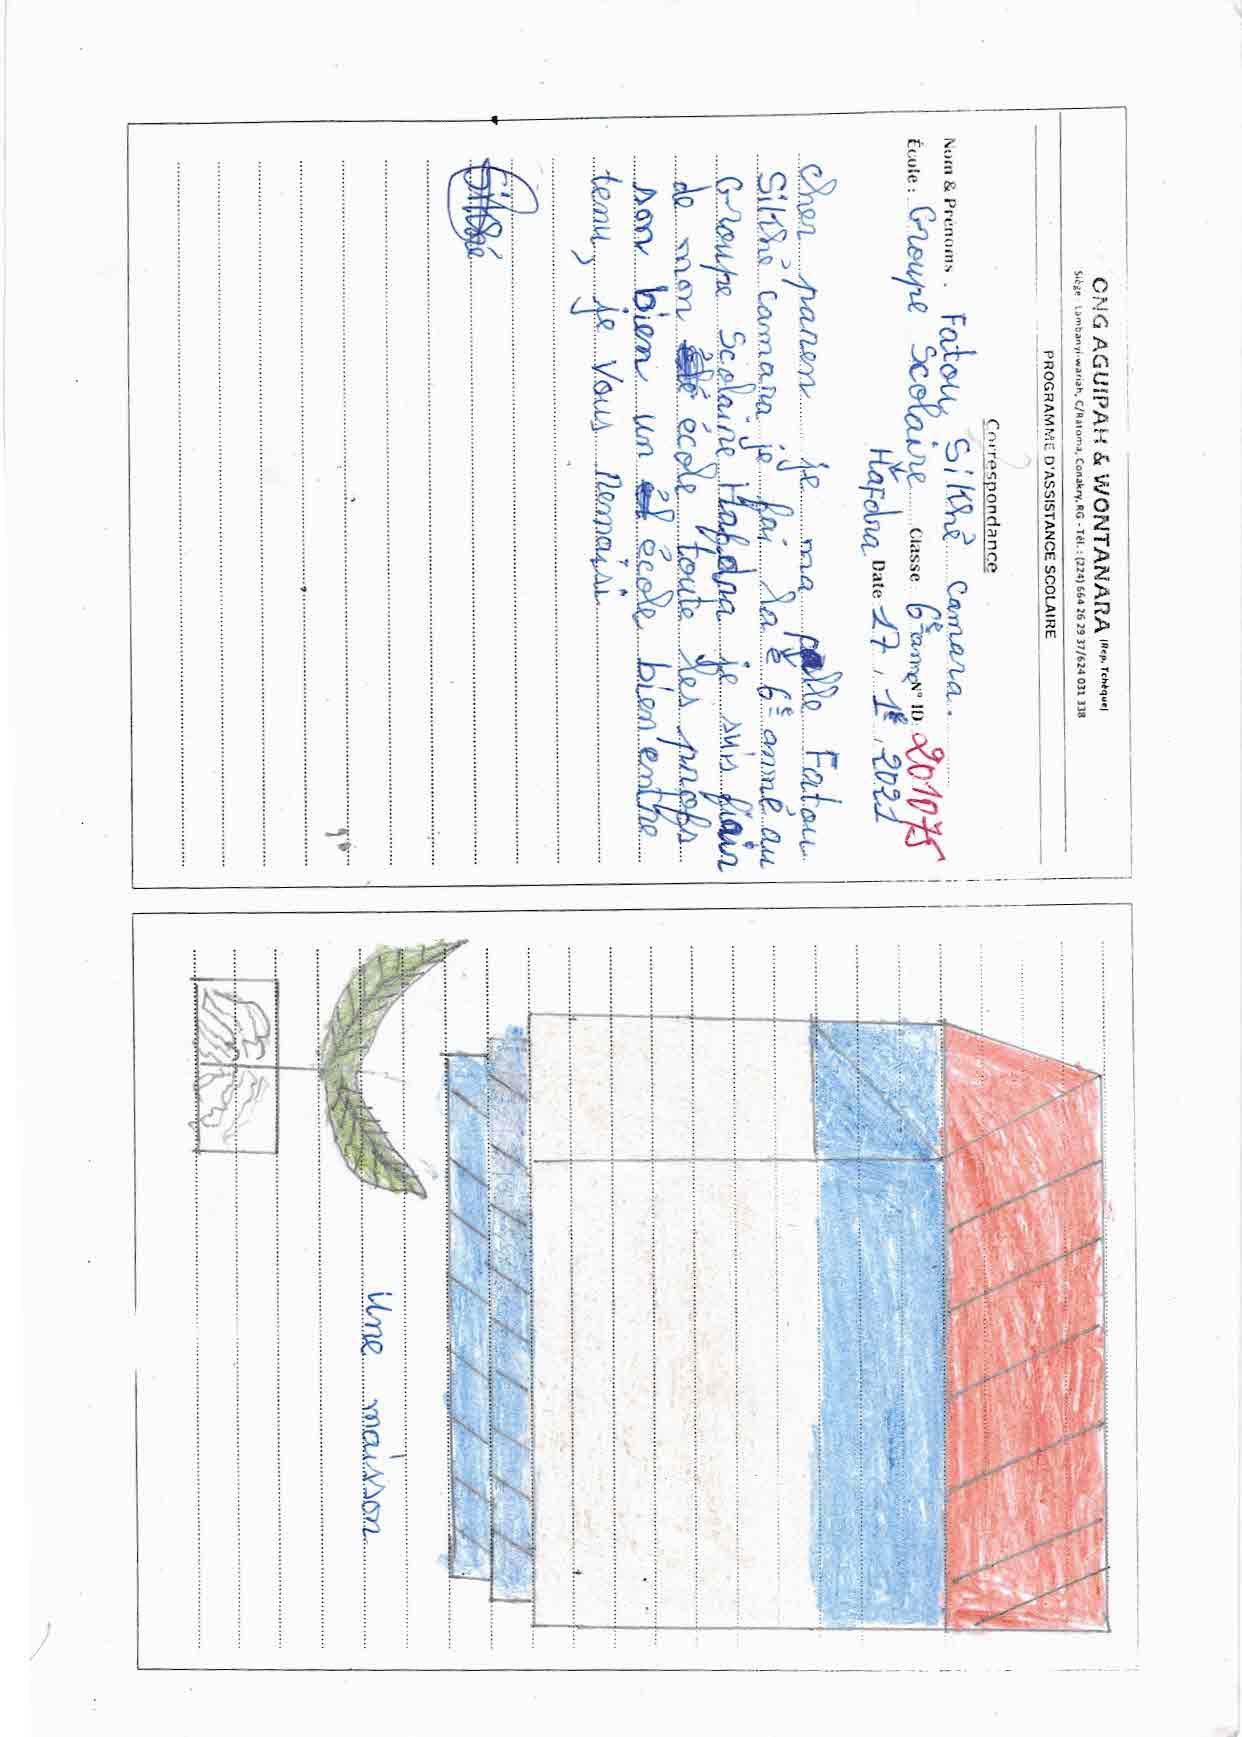 ONG AGUIPAH & WONTANARA (Rep. Tchèque)
Siège : Lambanyi-wariah, C/Ratoma, Conakry, RG - Tél. : (224) 664 26 29 37/624 031 338
PROGRAMME D'ASSISTANCE SCOLAIRE
Correspondance
Nom & Prénoms : Fatou Sikhè camara.
École : Groupe Scolaire Classe 6è anné N° ID : 201075
Hafdra Date 17, 1è, 2021
cher paren je ma pelle Fatou
Sikhè camara je fai la 6è anné au
Groupe Scolaire Hafdra je suis fiair
de mon école toute les profs
son bien un école bien enthe
tenu, je Vous Remaisi
Sikhé
Une maisson